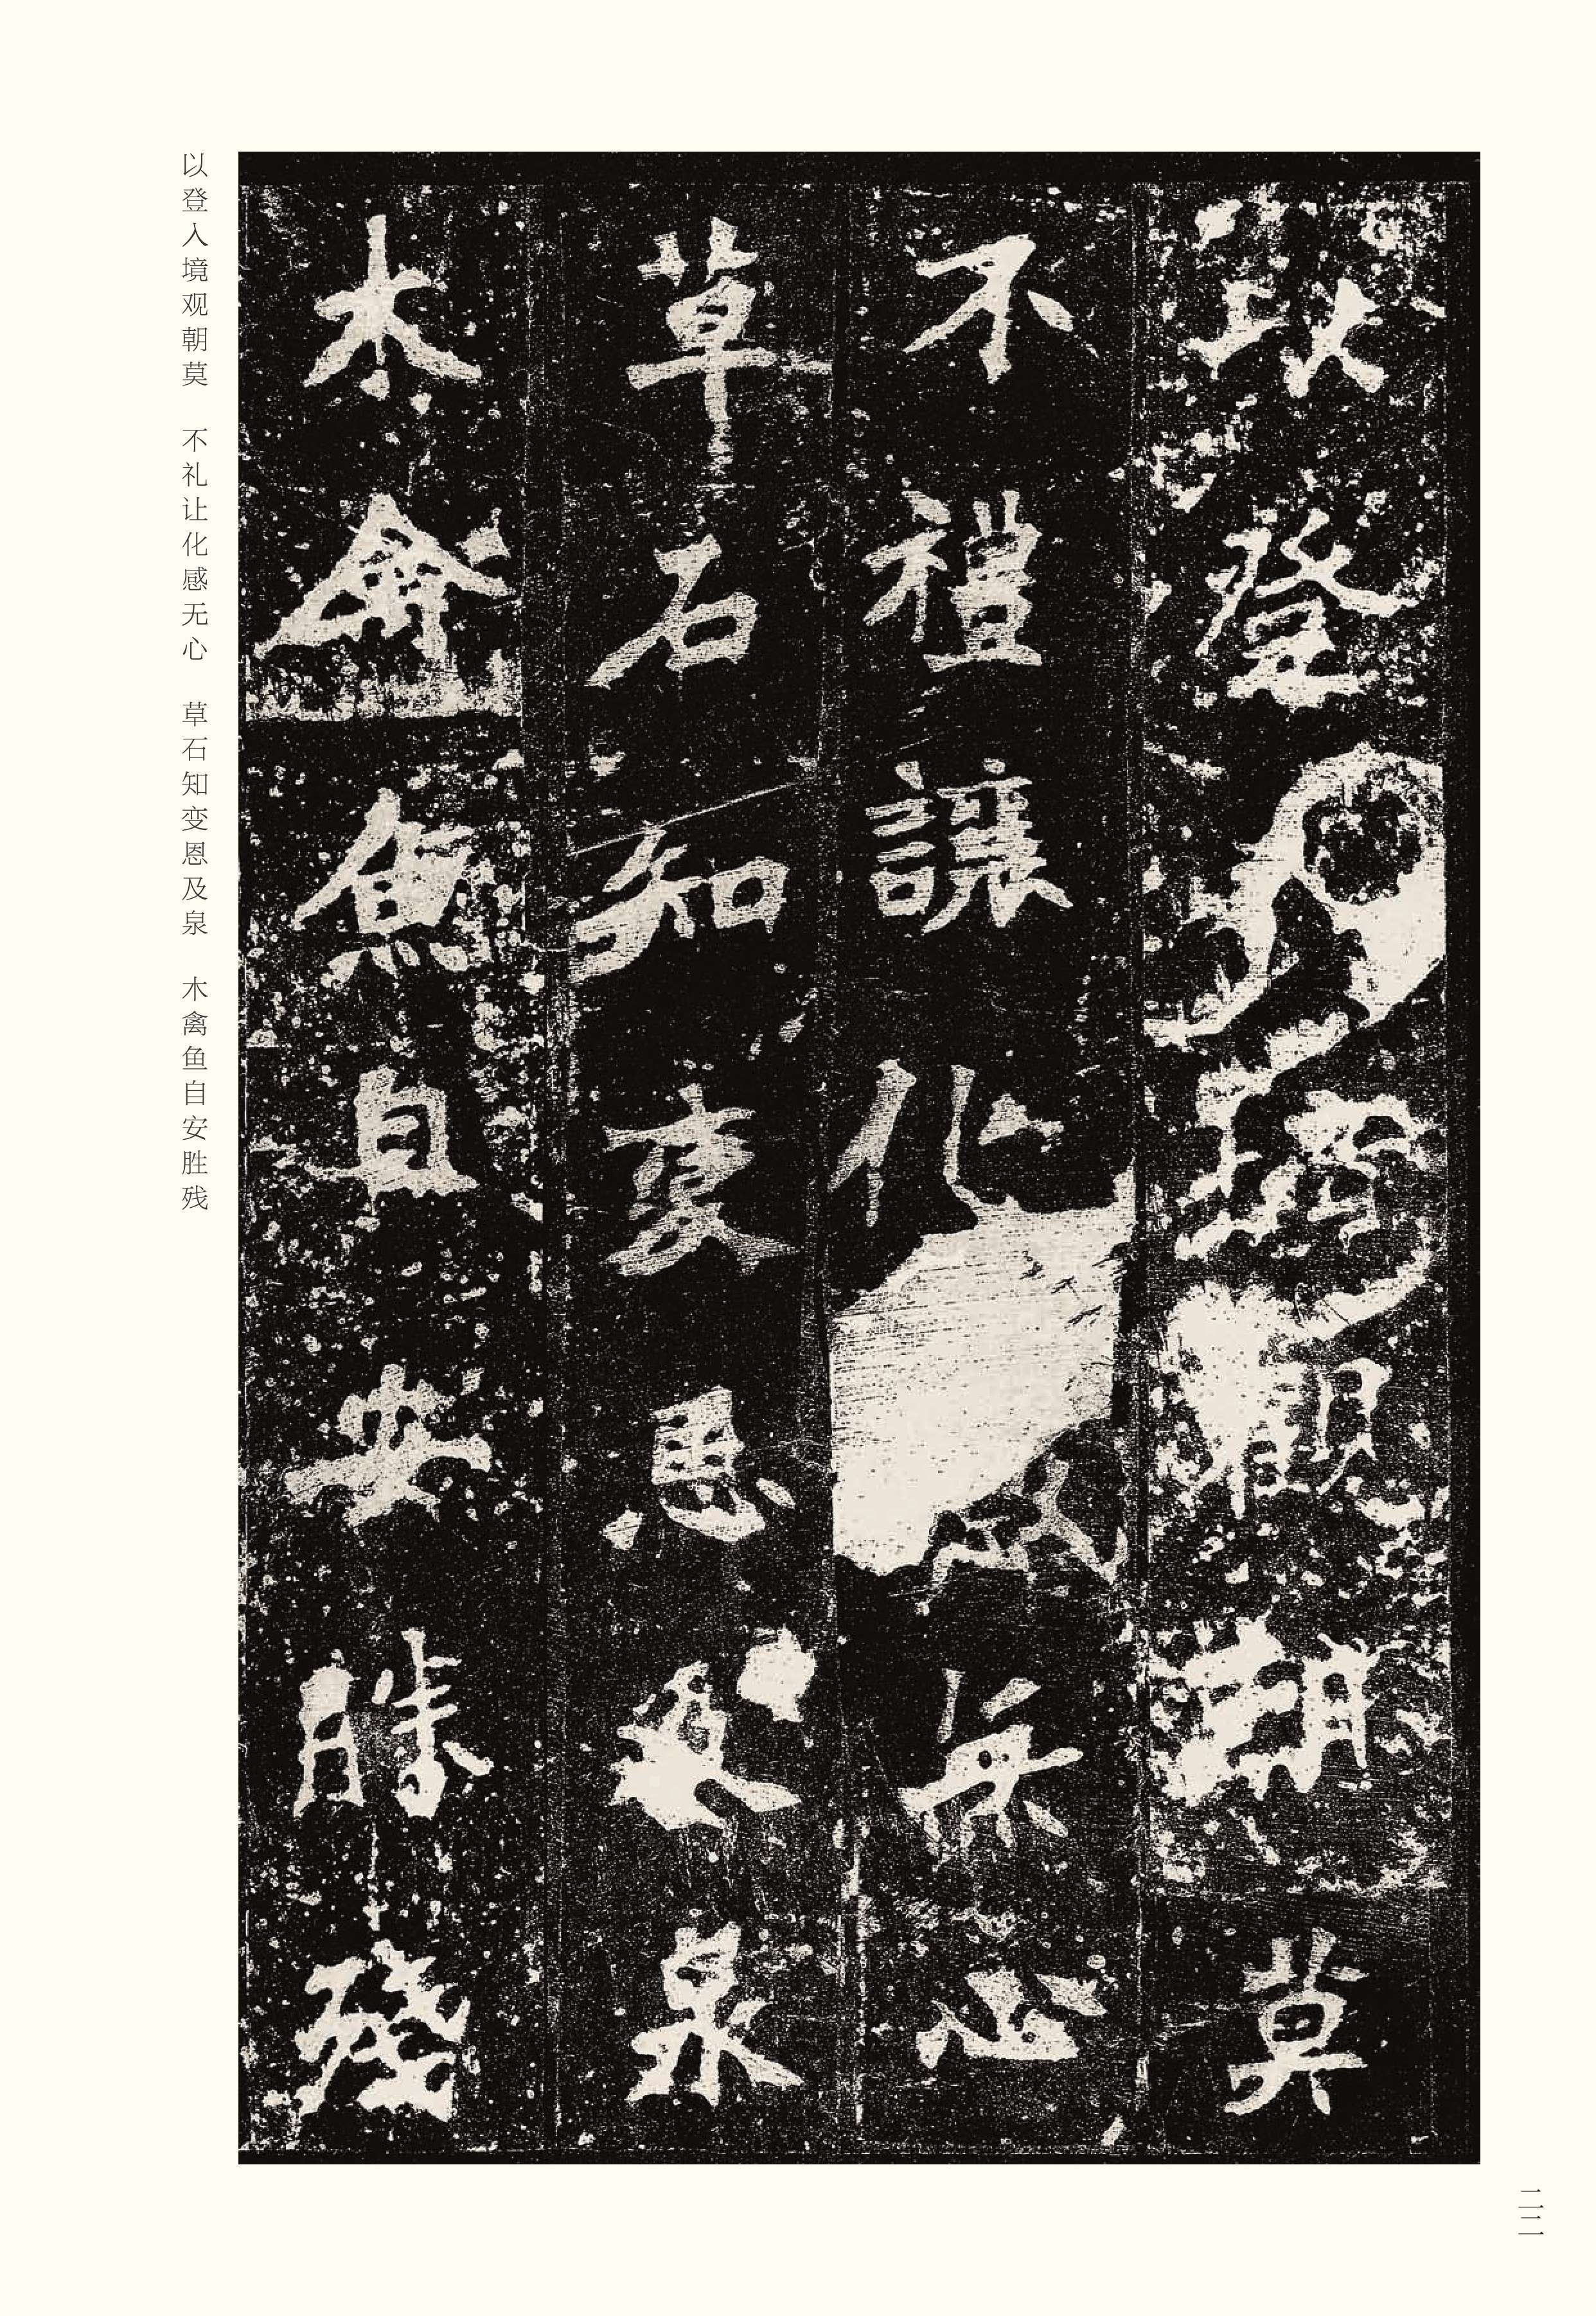 以登入境觀朝莫
不禮讓化感無心
草石知變恩及泉
木禽魚自安勝殘
以登入境观朝莫 不礼让化感无心 草石知变恩及泉 木禽鱼自安胜残
二二